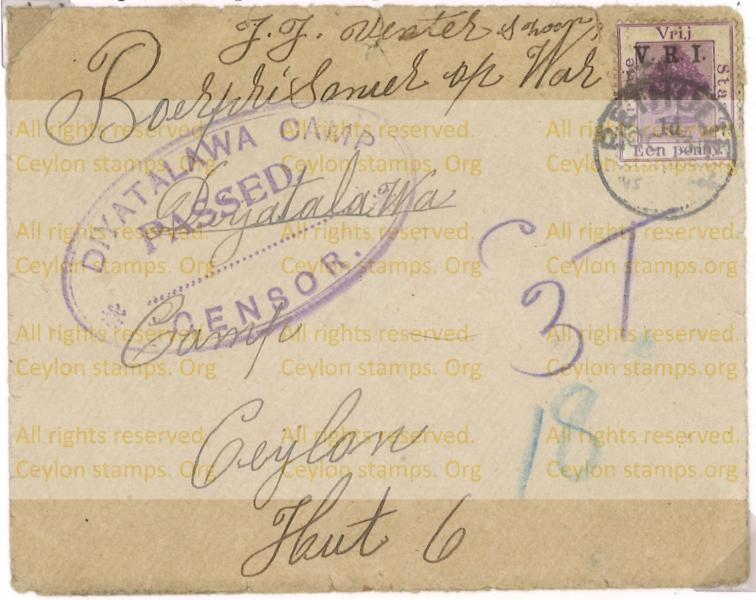 J. J. Venter
Vrij
V. R. I.
Sta
1d
Een penny
op War
DIYATALAWA CAMP
PASSED
CENSOR.
Diyatalawa
Camp
Ceylon
Hut 6
37
18
All rights reserved.
All rights reserved.
All rights reserved.
Ceylon stamps. Org
Ceylon stamps. Org
Ceylon stamps. org
All rights reserved.
All rights reserved.
All rights reserved.
Ceylon stamps. Org
Ceylon stamps. Org
Ceylon stamps.org
All rights reserved.
All rights reserved.
All rights reserved.
Ceylon stamps. Org
Ceylon stamps. Org
Ceylon stamps. org
All rights reserved.
All rights reserved.
All rights reserved.
Ceylon stamps. Org
Ceylon stamps. Org
Ceylon stamps. org